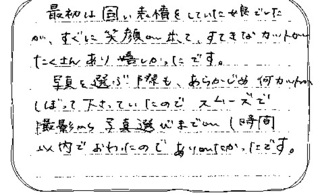 最初は固い表情をしていた娘でした
が、すぐに笑顔が出て、すてきなカットが
たくさんあり嬉しかったです。
写真を選ぶ際も、あらかじめ何カットか
しぼって下さっていたのでスムーズで
撮影から写真選びまでが1時間
以内でおわったのでありがたかったです。